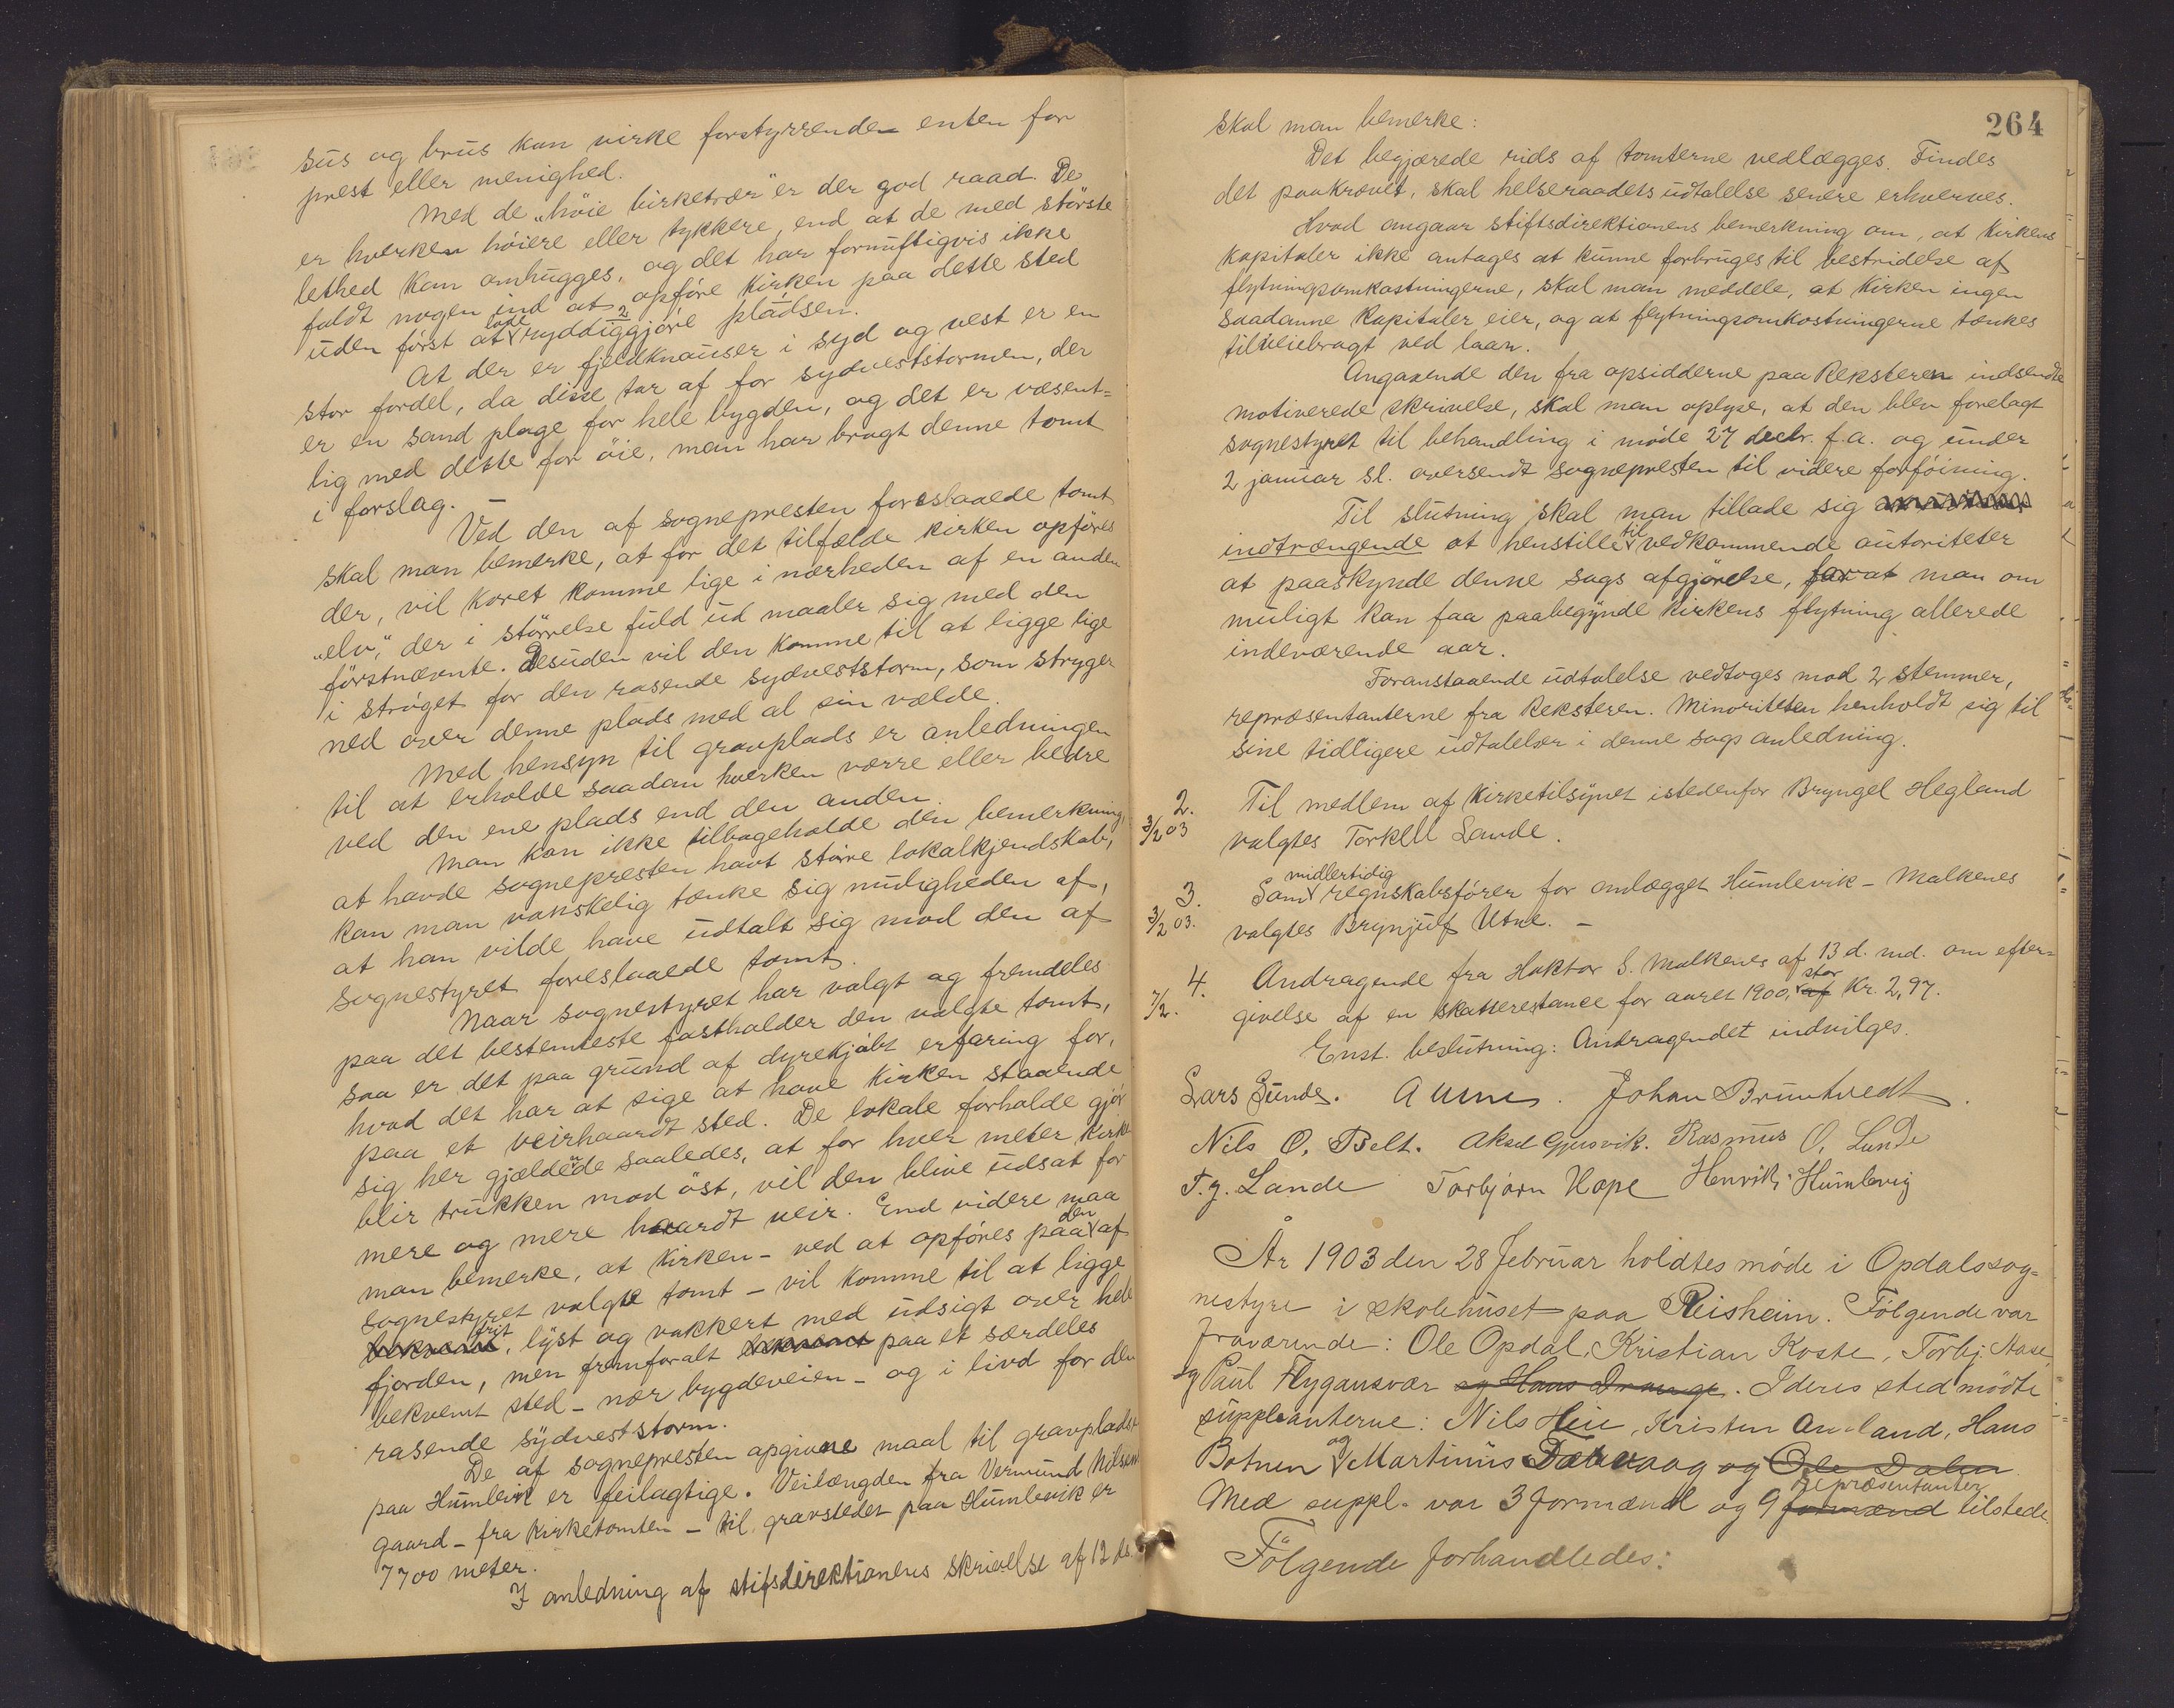 sus og brus kan virke forstyrrende enten for
prest eller menighed.
Med de "höie birketrær" er der god raad. De
er hverken höiere eller tykkere, end at de med störste
lethed kan omhugges, og det har fornuftigvis ikke
faldt nogen ind at opföre kirken paa dette sted
uden först at lade ryddiggjöre pladsen.
At der er fjeldknauser i syd og vest er en
stor fordel, da disse tar af for sydveststormen, der
er en sand plage for hele bygden, og det er væsent=
lig med dette for öie, man har bragt denne tomt
i forslag. —
Ved den af sognepresten foreslaaede tomt
skal man bemerke, at for det tilfælde kirken opföres
der, vil koret komme lige i nærheden af en anden
"elv", der i störrelse fuld ud maaler sig med den
förstnævnte. Desuden vil den komme til at ligge lige
i ströget for den rasende sydveststorm, som stryger
ned over denne plads med al sin vælde.
Med hensyn til gravplads er anledningen
til at erholde saadan hverken værre eller bedre
ved den ene plads end den anden.
Man kan ikke tilbageholde den bemerkning,
at havde sognepresten havt större lokalkjendskab,
kan man vanskelig tænke sig muligheden af,
at han vilde have udtalt sig mod den af
sognestyret foreslaaede tomt.
Naar sognestyret har valgt og fremdeles
paa det bestemteste fastholder den valgte tomt,
saa er det paa grund af dyrekjöbt erfaring for,
hvad det har at sige at have kirken staaende
paa et veirhaardt sted. De lokale forholde gjör
sig her gjældende saaledes, at for hver meter kirken
blir trukken mod öst, vil den blive udsat for
mere og mere haardt veir. End videre maa
man bemerke, at kirken - ved at opföres paa den af
sognestyret valgte tomt - vil komme til at ligge
frit, lyst og vakkert med udsigt over hele
fjorden, men fremforalt bekvemt paa et særdeles
bekvemt sted - nær bygdeveien - og i livd for den
rasende sydveststorm.
De af sognepresten opgivne maal til gravpladsen
paa Humlevik er feilagtige. Veilængden fra Vermund Nilsens
gaard - fra kirketomten - til gravstedet paa Humlevik er
7700 meter.
I anledning af stifsdirektionens skrivelse af 12 ds.
264
skal man bemerke:
Det begjærede rids af tomterne vedlægges. Findes
det paakrævet, skal helseraadets udtalelse senere erhverves.
Hvad angaar stiftsdirektionens bemerkning om, at kirkens
kapitaler ikke antages at kunne forbruges til bestridelse af
flytningsomkostningerne, skal man meddele, at kirken ingen
saadanne kapitaler eier, og at flytningsomkostningerne tænkes
tilveiebragt ved laan.
Angaaende den fra opsidderne paa Reksteren indsendte
motiverede skrivelse, skal man oplyse, at den blev forelagt
sognestyret til behandling i möde 27 decbr. f.a. og under
2 januar sl. oversendt sognepresten til videre forföining.
Til slutning skal man tillade sig
indtrængende at henstille til vedkommende autoriteter
at paaskynde denne sags afgjörelse, for at man om
muligt kan faa paabegynde kirkens flytning allerede
indeværende aar.
Foranstaaende udtalelse vedtoges mod 2 stemmer,
repræsentanterne fra Reksteren. Minoriteten henholdt sig til
sine tidligere udtalelser i denne sags anledning.
2. Til medlem af kirketilsynet istedenfor Bryngel Hegland
3/2 03 valgtes Torkell Lande.
3. Som midlertidig regnskabsförer for anlægget Humlevik - Malkenes
3/2 03. valgtes Brynjulf Utne. —
4. Andragende fra Haktor S. Malkenes af 13 d. md. om efter=
7/2. givelse af en skatterestance for aaret 1900, stor af Kr. 2,97.
Enst. beslutning: Andragendet indvilges.
Lars Sunde. A Unne. Johan Bruntvedt.
Nils O. Belt. Aksel Gjøsvik. Rasmus O. Lunde
T. g. Lande Torbjörn Hope Henrik Humlevig
År 1903 den 28 Februar holdtes möde i Opdalssog=
nestyre i skolehuset paa Reisheim. Fölgende var
fraværende: Ole Opdal, Kristian Koste, Torbj. Aase,
og Paul Flygansvær og Hans Drange. I deres sted mödte
suppleanterne: Nils Heie, Kristen Amland, Hans
Botnen og Martinus Dalevaag og Ole Dalen.
Med suppl. var 3 formænd og 9 formænd repræsentanter tilstede.
Fölgende forhandledes: